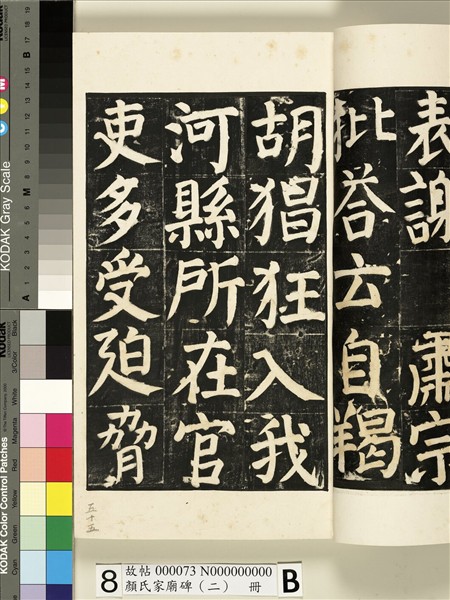 表謝肅宗
批荅云自羯
胡猖狂入我
河縣所在官
吏多受迫脅
五十五
8
故帖 000073 N000000000
顏氏家廟碑（二） 冊
B
KODAK Gray Scale
C
M
A 1 2 3 4 5 6 M 8 9 10 11 12 13 14 15 B 17 18 19
Kodak
KODAK Color Control Patches
Cyan
Green
Yellow
Red
Magenta
White
3/Color
Black